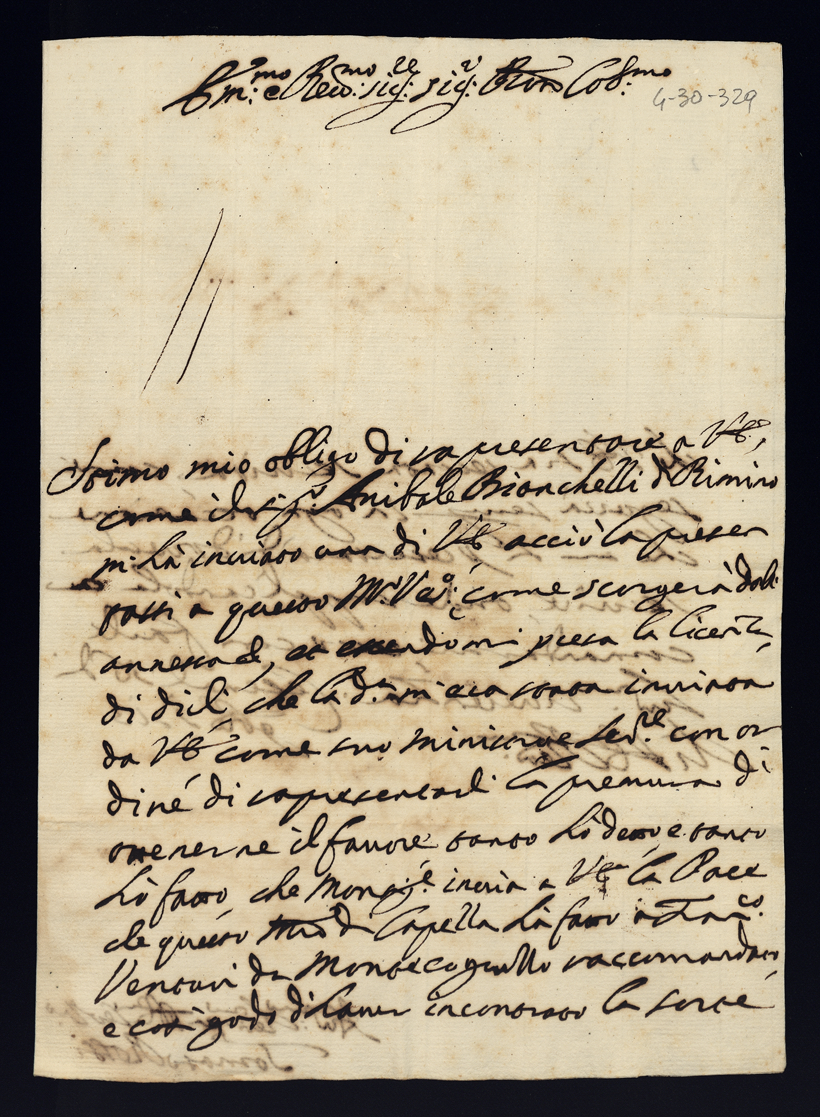 Em:mo e Rev:mo sig:re sig:r Pron Col:mo
4-30-329
Stimo mio obligo di rapresentare a VE,
come il sig:r Anibale Bianchelli di Rimino
m hà inviato una di VE acciò la presen
tassi a questo M: Ves:o come scorgerà dall
annessa et essendomi presa la licenza
di dirli, che la d:a mi era stata inviata
da VE come suo ministro e Led:le con or
diné di rapresentarli la premura di
ottenerne il favore tanto hò detto e tanto
hò fatto che Monsig:r invia a VE la Pace
che questo Mro di Capella hà fatto a Fran:co
Venturi da Montecogrullo raccomandato,
e così godo d'haver incontrato la sorte